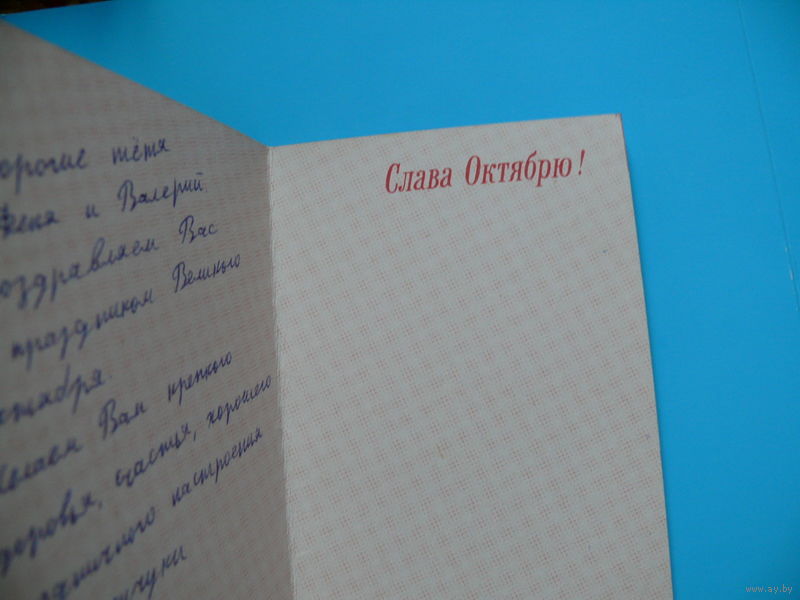 орогие тётя
Женя и Валерий
оздравляем Вас
праздником Великого
ктября
Желаем Вам крепкого
доровья, счастья, хорошего
здничного настроения
чуки
Слава Октябрю!
www.ay.by